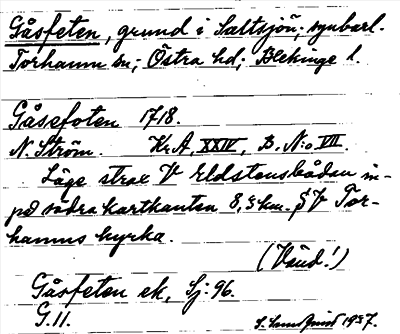 Gåsfeten, grund i Saltsjön; synbarl.
Torhamn sn; Östra hd; Blekinge l.
Gåsefoten 1718.
N. Ström. Kr.A, XXIV, B. N:o VII.
Läge strax V Eldstensbådan in-
på södra kartkanten 8,5 km. SV Tor-
hamns kyrka.
(Vänd!)
Gåsfeten ek. Sj: 96.
G.11. 1937.